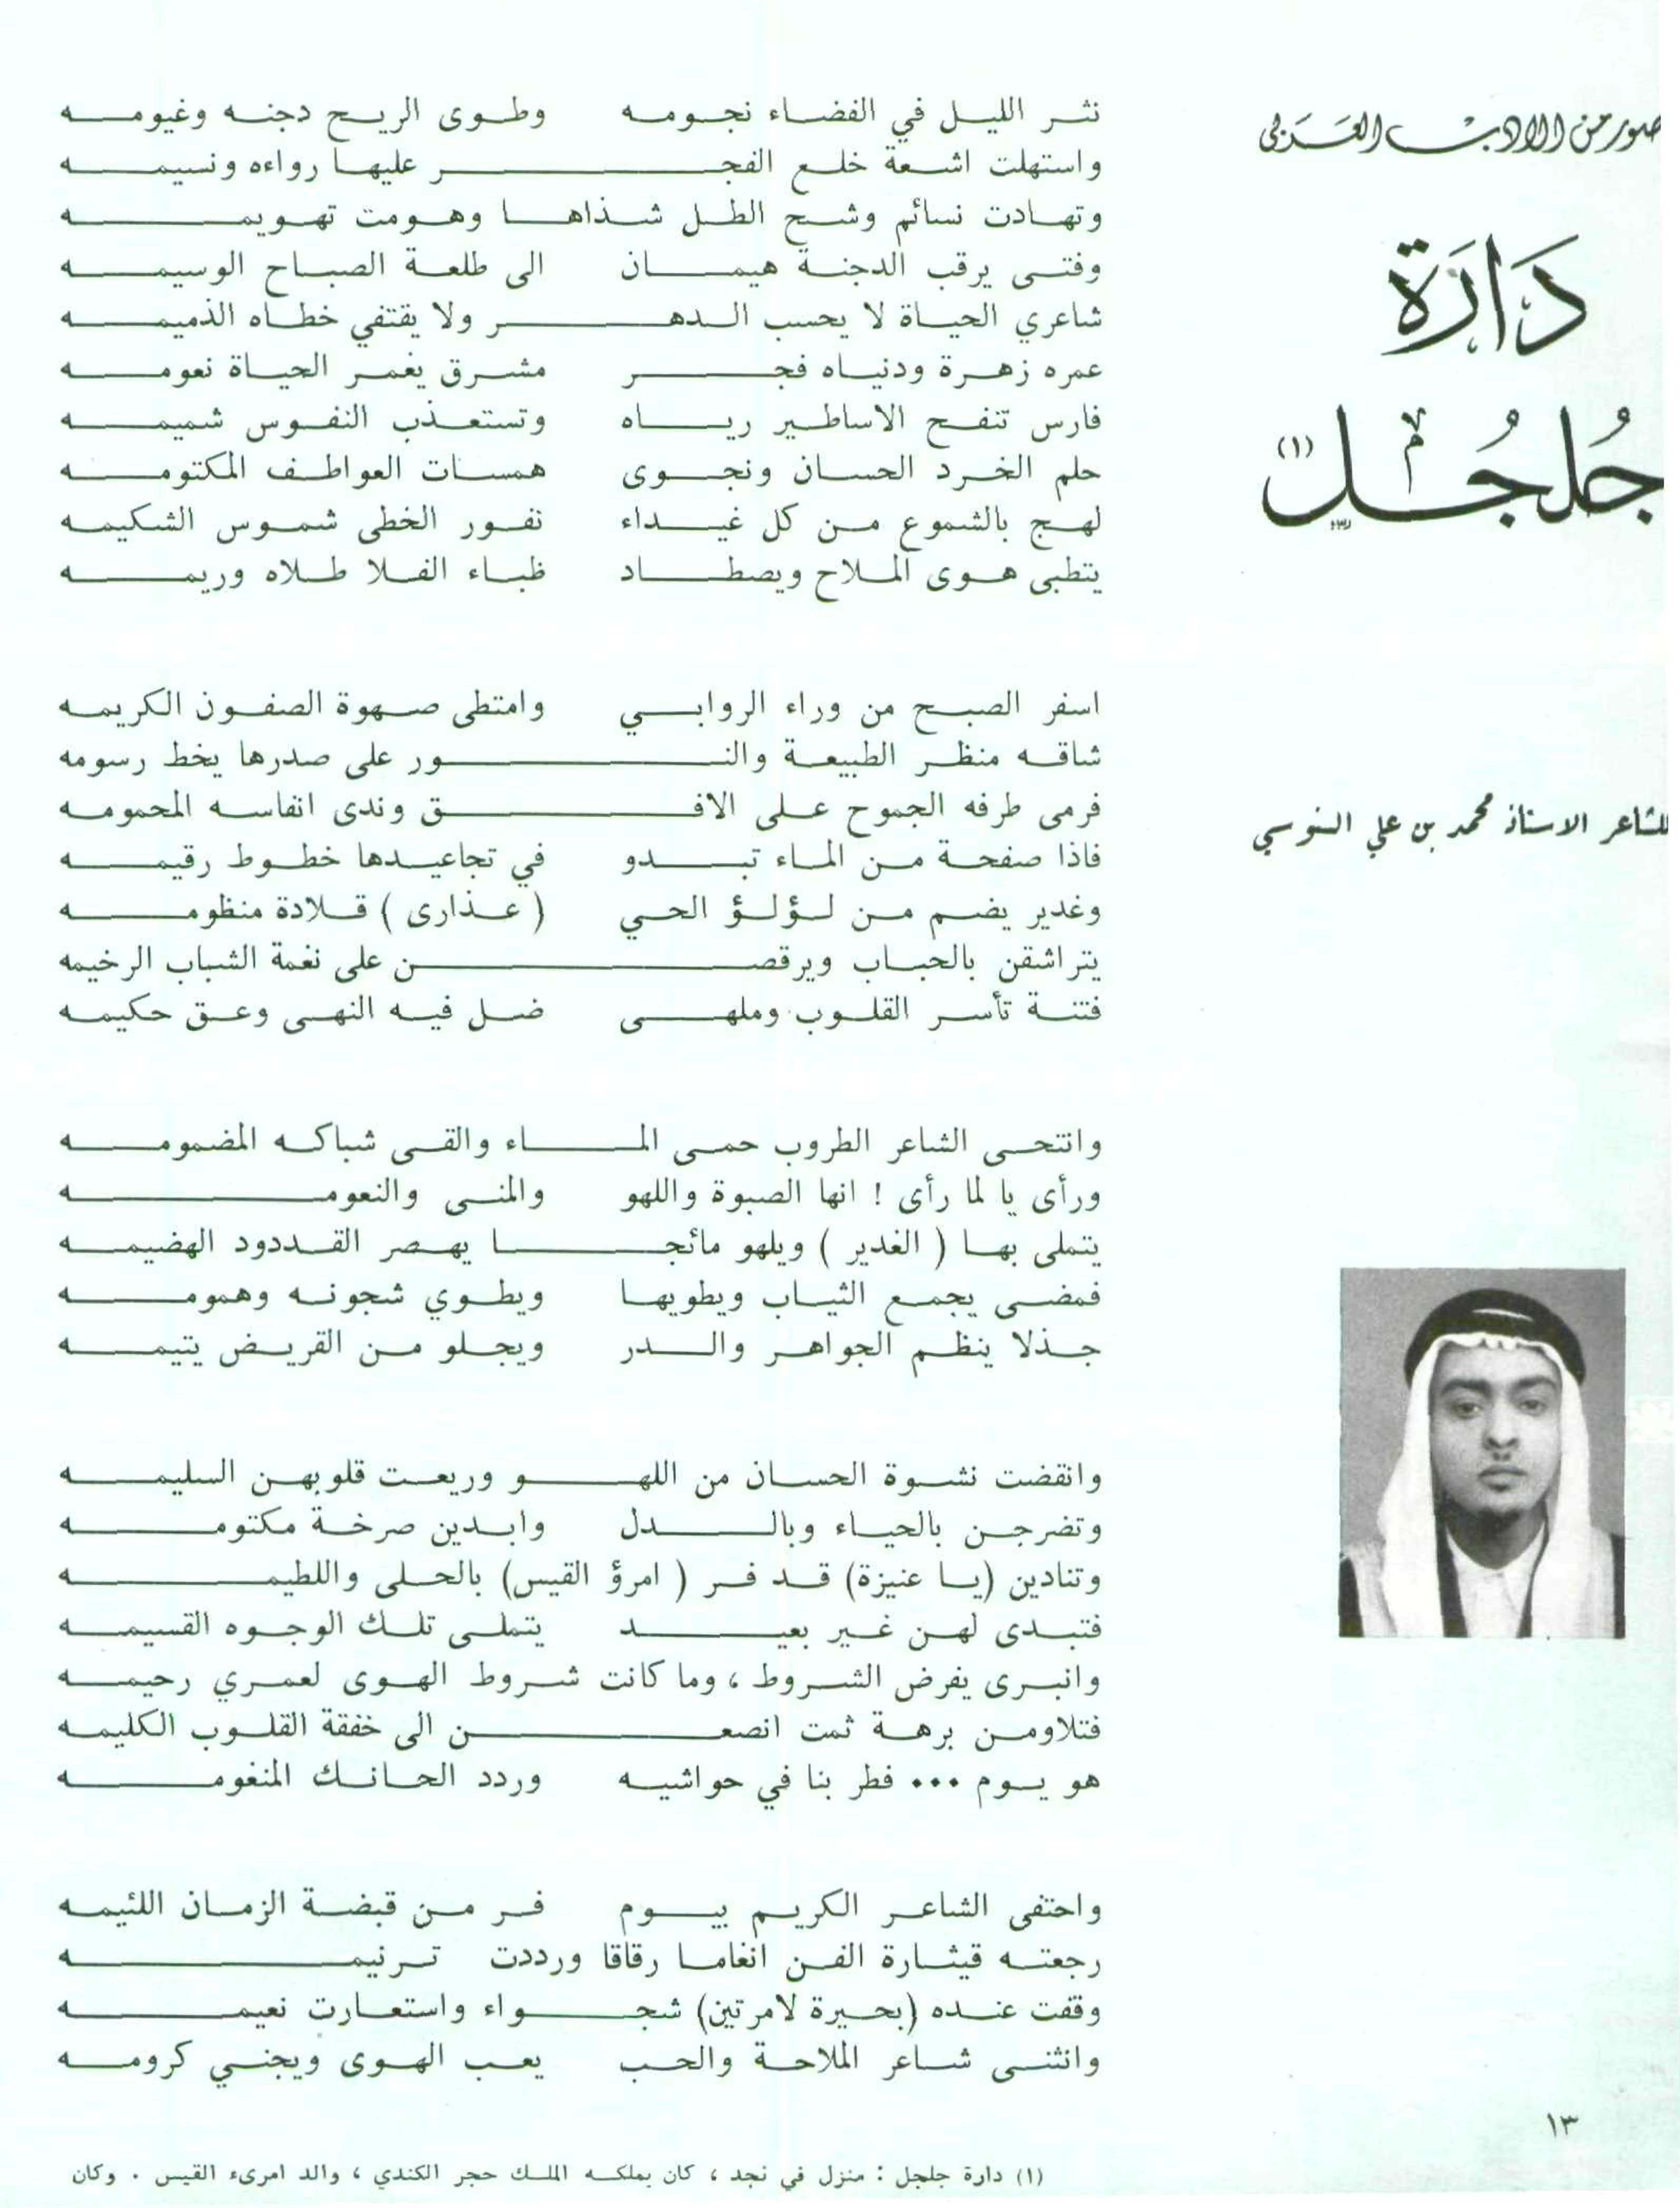 صور من الادب العَرَبي
دَارَة
جُلجُل (١)
للشاعر الاستاذ محمد بن علي السنوسي
نثر الليل في الفضاء نجومه وطوى الريح دجنه وغيومه
واستهلت اشعة خلع الفجر عليها رواءه ونسيمه
وتهادت نسائم وشح الطل شذاها وهومت تهويمه
وفتى يرقب الدجنة هيمان الى طلعة الصباح الوسيمه
شاعري الحياة لا يحسب الدهر ولا يقتفي خطاه الذميمه
عمره زهرة ودنياه فجر مشرق يغمر الحياة نعومه
فارس تنفح الاساطير رياه وتستعذب النفوس شميمه
حلم الخرد الحسان ونجوى همسات العواطف المكتومه
لهج بالشموع من كل غيداء نفور الخطى شموس الشكيمه
يتطبى هوى الملاح ويصطاد ظباء الفلا طلاه وريمه
اسفر الصبح من وراء الروابي وامتطى صهوة الصفون الكريمه
شاقه منظر الطبيعة والنور على صدرها يخط رسومه
فرمى طرفه الجموح على الافق وندى انفاسه المحمومه
فاذا صفحة من الماء تبدو في تجاعيدها خطوط رقيمه
وغدير يضم من لؤلؤ الحي ( عذارى ) قلادة منظومه
يتراشقن بالحباب ويرقصن على نغمة الشباب الرخيمه
فتنة تأسر القلوب وملهى ضل فيه النهى وعق حكيمه
وانتحى الشاعر الطروب حمى الماء والقى شباكه المضمومه
ورأى يا لما رأى ! انها الصبوة واللهو والمنى والنعومه
يتملى بها ( الغدير ) ويلهو مائجا يهصر القددود الهضيمه
فمضى يجمع الثياب ويطويها ويطوي شجونه وهمومه
جذلا ينظم الجواهر والدر ويجلو من القريض يتيمه
وانقضت نشوة الحسان من اللهو وريعت قلوبهن السليمه
وتضرجن بالحياء وبالدل وابدين صرخة مكتومه
وتنادين (يا عنيزة) قد فر ( امرؤ القيس) بالحلى واللطيمه
فتبدى لهن غير بعيد يتملى تلك الوجوه القسيمه
وانبرى يفرض الشروط ، وما كانت شروط الهوى لعمري رحيمه
فتلاومن برهة ثمت انصعن الى خفقة القلوب الكليمه
هو يوم ••• فطر بنا في حواشيه وردد الحانك المنغومه
واحتفى الشاعر الكريم بيوم فر من قبضة الزمان اللئيمه
رجعته قيثارة الفن انغاما رقاقا ورددت ترنيمه
وقفت عنده (بحيرة لامرتين) شجواء واستعارت نعيمه
وانثنى شاعر الملاحة والحب يعب الهوى ويجني كرومه
١٣
(١) دارة جلجل : منزل في نجد ، كان يملكه الملك حجر الكندي ، والد امرىء القيس . وكان